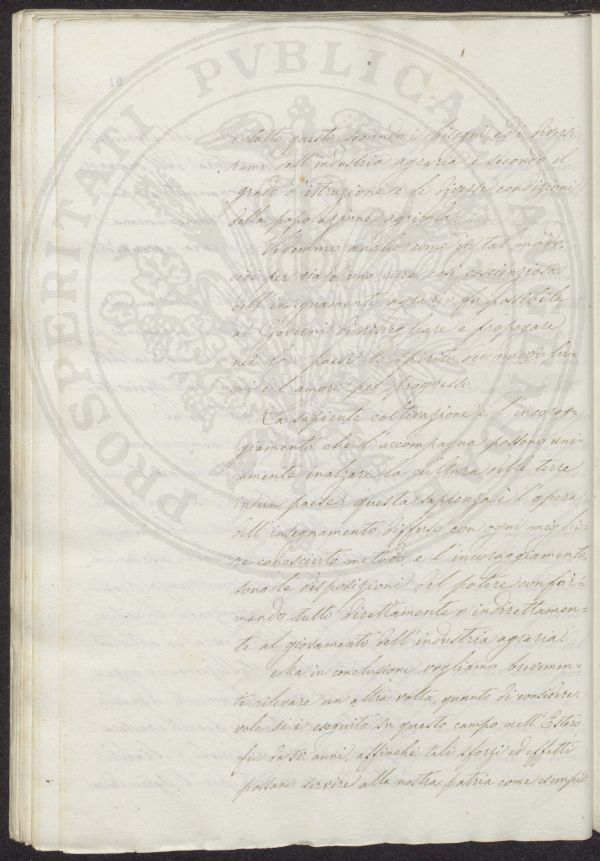 e tutto questo secondo i bisogni ed i diversi
rami dell'industria agraria e secondo il
grado d'istruzione e le diverse condizioni
della popolazione agricola.
Vedemmo anche come in tal modo,
cioè per via d'una cura così coscienziosa
dell'insegnamento agrario fu possibile
ai Governi di risvegliare e propagare
nei loro paesi lo spirito dei nuovi lu-
mi e l'amore pel progresso.
La sapiente coltivazione e l'incorag-
giamento che l'accompagna possono uni-
camente inalzare la cultura delle terre
in un paese: questa sapienza è l'opera
dell'insegnamento diffuso con ogni miglio-
re conosciuto metodo, e l'incoraggiamento
sono le disposizioni del potere confor-
mando tutto direttamente o indirettamen-
te al giovamento dell'industria agraria.
Ma in conclusione vogliamo brevemen-
te rilevare un'altra volta, quanto di considere-
vole si è eseguito su questo campo nell'Estero
fin da anni, affinchè tali sforzi ed effetti
possano servire alla nostra patria come esempio
PROSPERITATI PVBLICAE